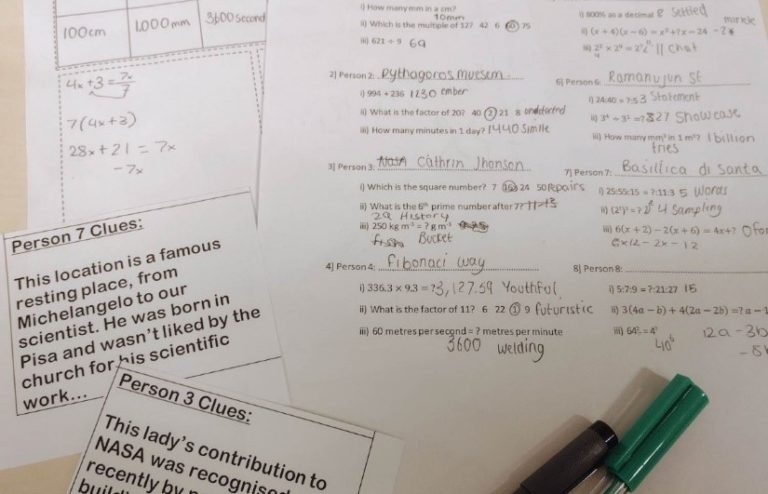 100cm
1,000mm
3600 second
4x + 3 = 7x/7
7(4x+3)
28x + 21 = 7x
- 7x
Person 7 Clues:
This location is a famous
resting place, from
Michelangelo to our
scientist. He was born in
Pisa and wasn't liked by the
church for his scientific
work...
Person 3 Clues:
This lady's contribution to
NASA was recognised
recently by
i) How many mm in a cm?
10mm
ii) Which is the multiple of 12? 42 6 60 75
iii) 621 ÷ 9 69
2) Person 2: Pythagoros Muesem
i) 994 + 236 1230 ember
ii) What is the factor of 20? 40 2 21 8 undetected
iii) How many minutes in 1 day? 1440 Simile
3) Person 3: NASA Cathrin Jhonson
i) Which is the square number? 7 16 24 50 Repairs
ii) What is the 6th prime number after 7? 11 13
29 History
iii) 250 kg m⁻³ = ? g m⁻³
Bucket
4) Person 4: fibonaci way
i) 336.3 × 9.3 = ? 3,127.59 Youthful
ii) What is the factor of 11? 6 22 1 9 futuristic
iii) 60 metres per second = ? metres per minute
3600 welding
i) 800% as a decimal 8 settled
miracle
ii) (x + 4)(x − 6) = x² + ?x − 24 -2
iii) 2² × 2⁹ = 2? 11 Chat
6) Person 6: Ramanujun St
i) 24:40 = ?:5 3 Statement
ii) 3⁴ ÷ 3¹ = ? 27 Showcase
iii) How many mm³ in 1 m³? 1 billion
tries
7) Person 7: Basillica di Santa
i) 25:55:15 = ?:11:3 5 Words
ii) (2²)² = 2? 4 Sampling
iii) 6(x + 2) − 2(x + 6) = 4x + ? 0
6x 12 - 2x - 12
8) Person 8:
i) 5:7:9 = ?:21:27 15
ii) 3(4a − b) + 4(2a − 2b) = ?a −
12a - 3b
iii) 64² = 4?